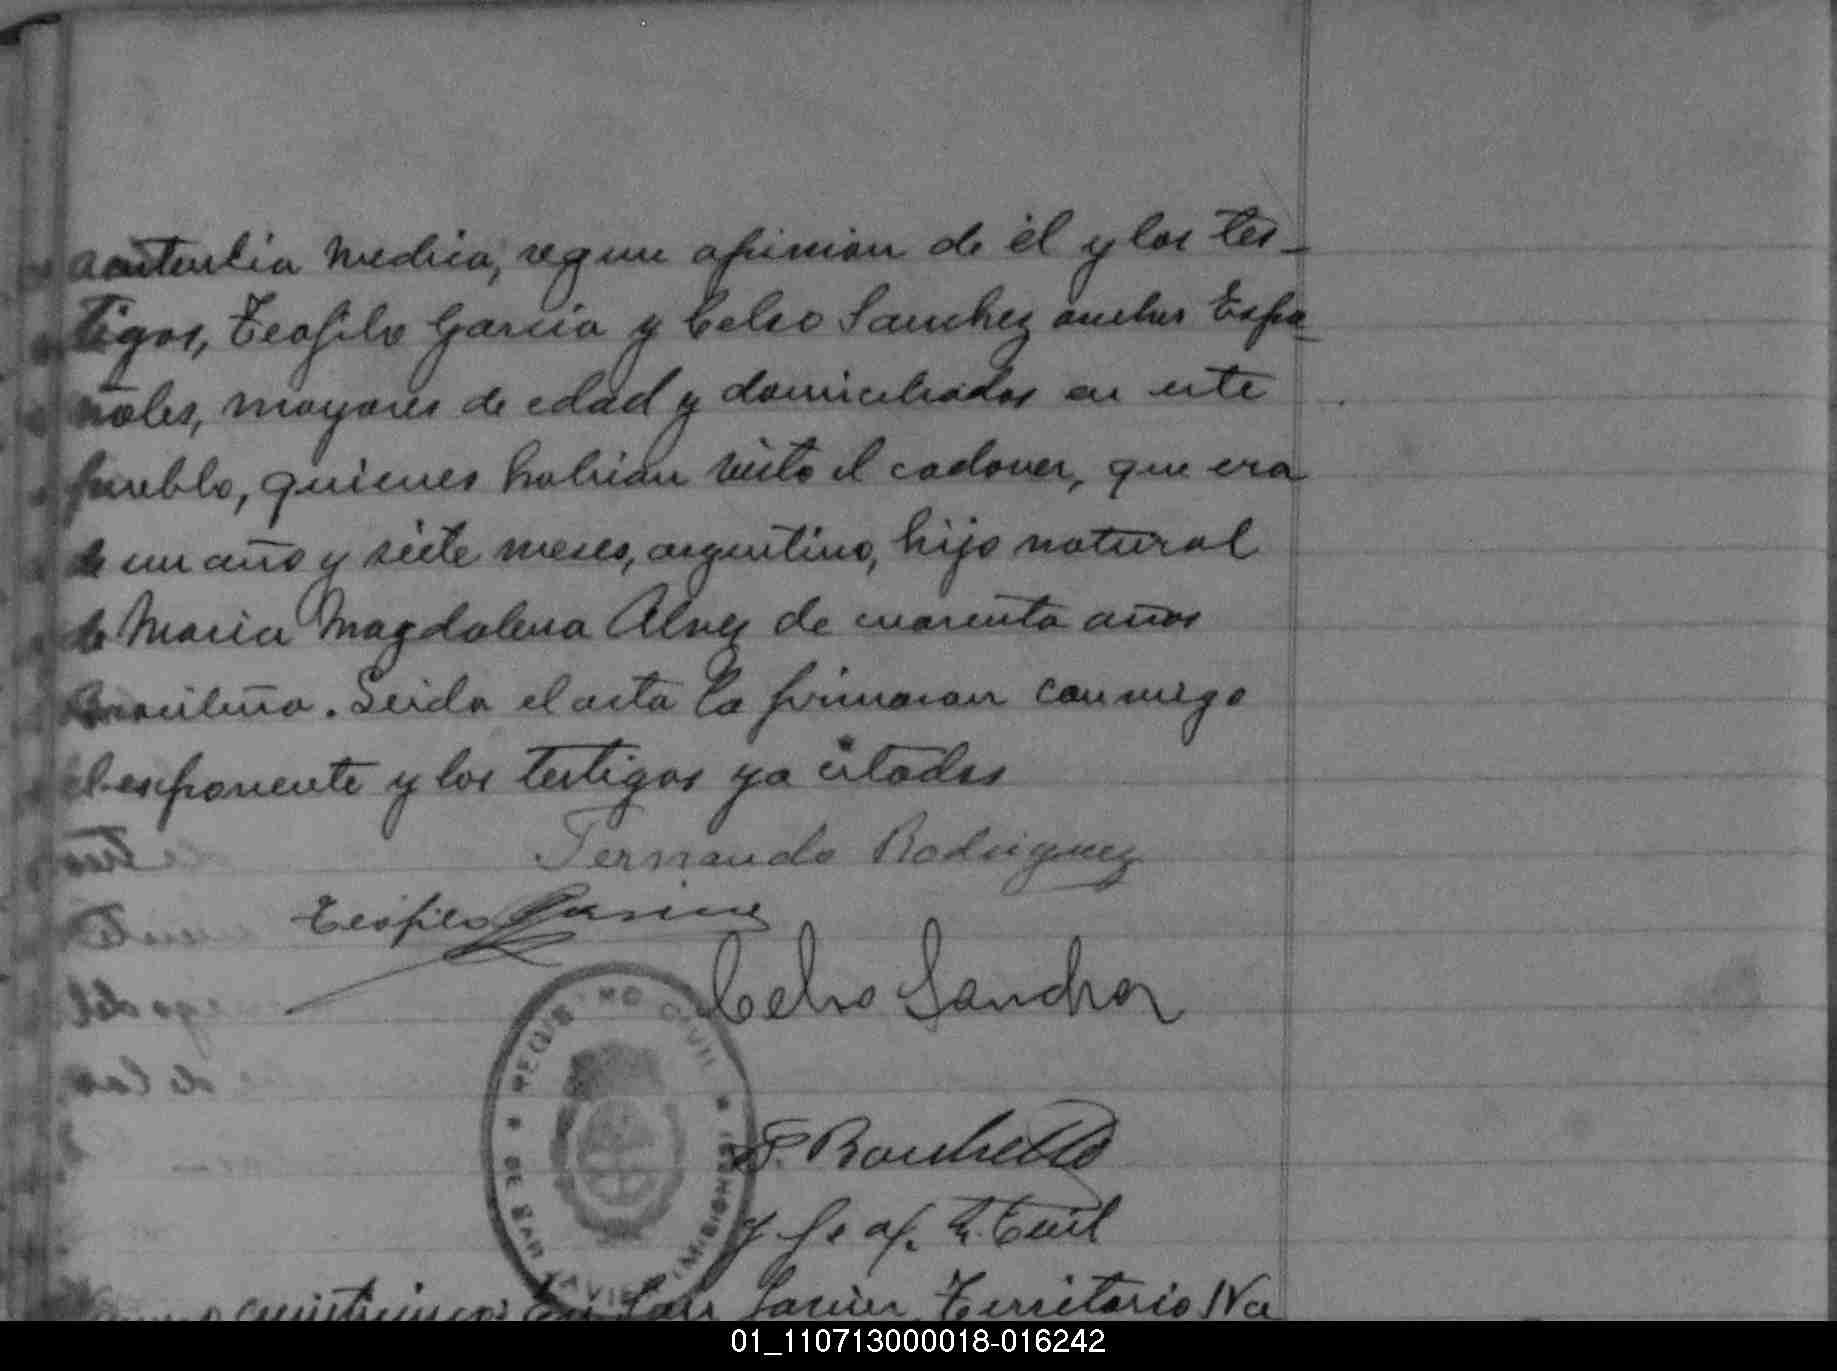 asistencia medica, segun opinion de él y los tes-
tigos, Teofilo Garcia y Celso Sanchez ambos Espa-
ñoles, mayores de edad y domiciliados en este
pueblo, quienes habian visto el cadaver, que era
de un año y siete meses, argentino, hijo natural
de Maria Magdalena Alvez de cuarenta años
Brasileña. Leida el acta la firmaron conmigo
el exponente y los testigos ya citados
Fernando Rodriguez
Teofilo Garcia
Celso Sanchez
REGISTRO CIVIL
DE SAN JAVIER (MISIONES)
J. Gefe
En San Javier, Territorio Na
01_110713000018-016242